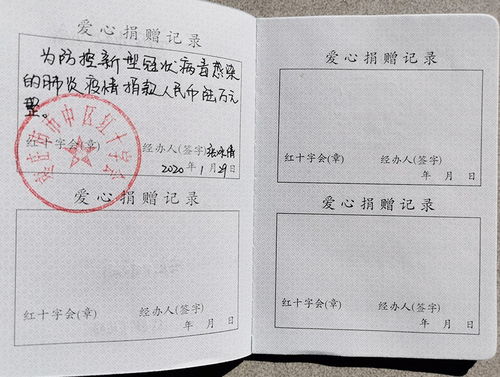 爱心捐赠记录
为防控新型冠状病毒感染
的肺炎疫情捐款人民币 万元
整。
红十字会(章) 经办人(签字)
2020年1月29日
市市中区红十字会
爱心捐赠记录
红十字会(章) 经办人(签字)
年 月 日
爱心捐赠记录
红十字会(章) 经办人(签字)
年 月 日
爱心捐赠记录
红十字会(章) 经办人(签字)
年 月 日